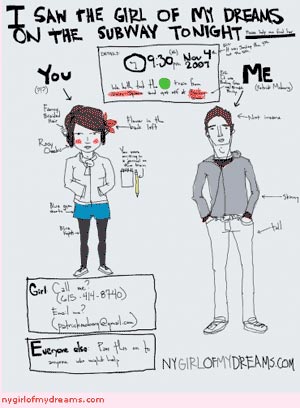 I SAW THE GIRL OF MY DREAMS
ON THE SUBWAY TONIGHT
Please help me find her
DETAILS:
9:30 pm Nov 4th
2007
We both took the train from
Union Square and got off at
YOU
(!?!)
ME
(Patrick Moberg)
Fancy
Braided
Hair
Flower in the
back left
Rosy
Cheeks
You were
writing in
a journal on
the train
Blue gym
shorts
Blue
tights
Not insane
Skinny
tall
Girl: Call me?
Email me?
Everyone else: Pass this on to
anyone who might help
NYGIRLOFMYDREAMS.COM
nygirlofmydreams.com